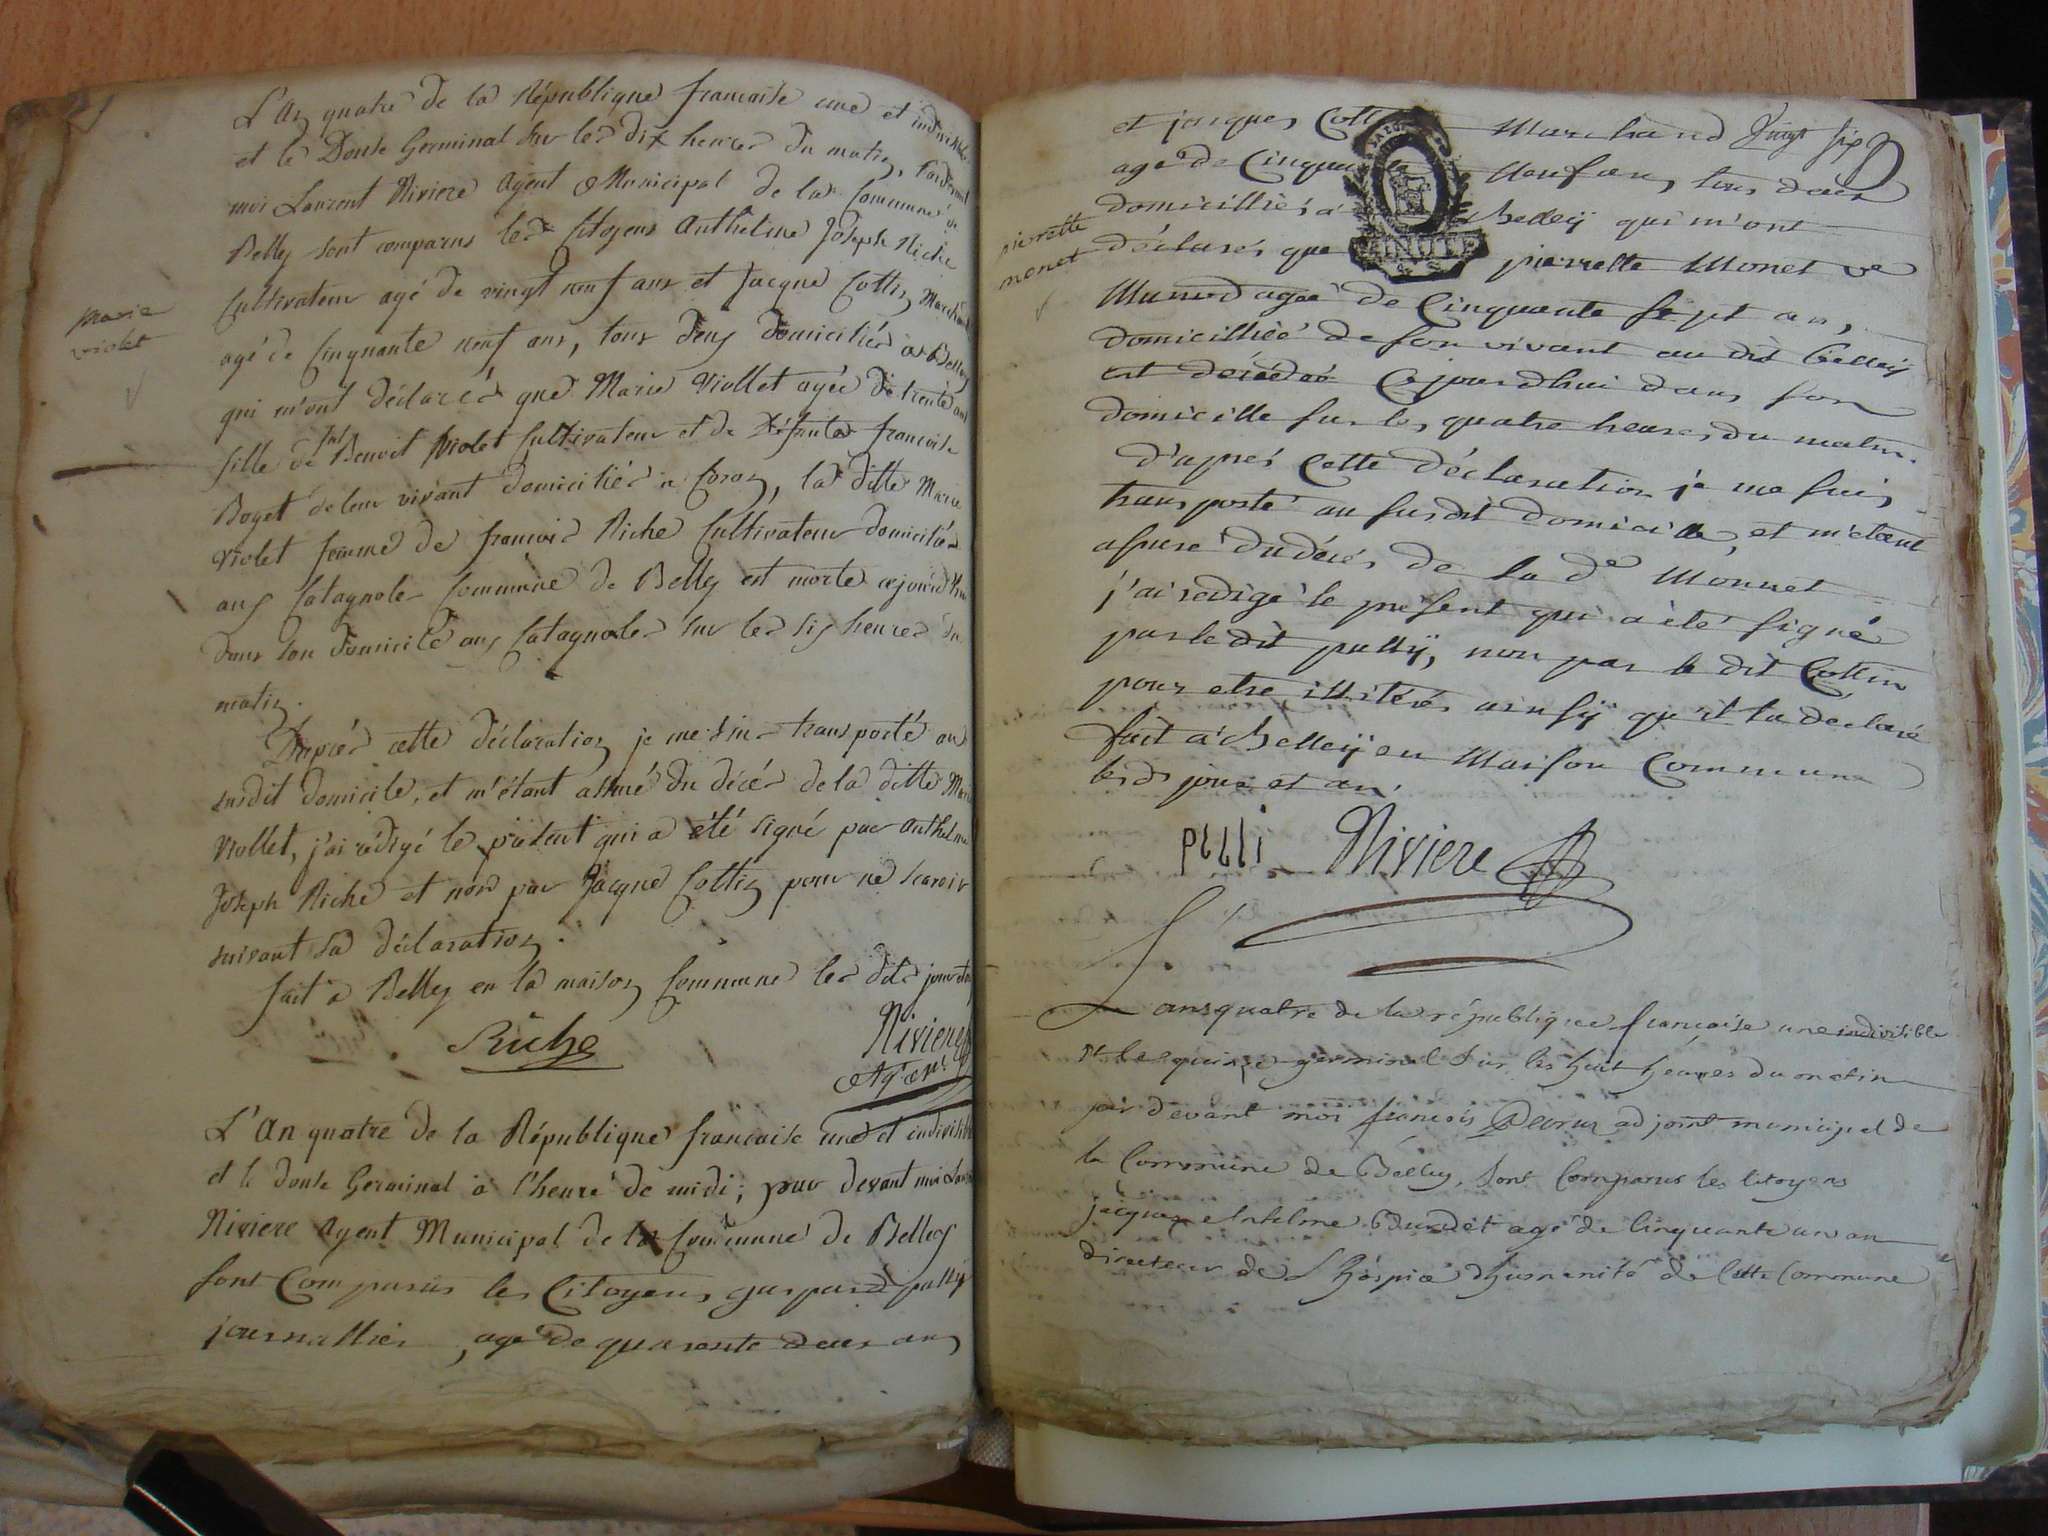 L'An quatre de la République francaise une et indivisible
et le Douse Germinal sur les dix heures du matin, Pardevant
moi Laurent Riviere Agent Municipal de la Commune de
Belley sont comparus les Citoyens Anthelme Joseph Riche
Cultivateur agé de vingt neuf ans et Jacque Cottin Marchand
agé de Cinquante neuf ans, tous deux domiciliés à Belley
qui m'ont déclarés que Marie Viollet agée de trente ans
fille de Benoit Violet Cultivateur et de Défunte francoise
Boget de leur vivant domiciliés à Coron, la ditte Marie
Violet femme de francois Riche Cultivateur domiciliés
aux Catagnoles Commune de Belley est morte cejourd'hui
dans son domicile aux Catagnoles sur les six heures du
matin.
Marie
violet
D'aprés cette déclaration je me suis transporté au
susdit domicile, et m'étant assuré du décés de la ditte Marie
Viollet, j'ai rédigé le présent qui a été signé par Anthelme
Joseph Riche et non par Jacque Cottin pour ne scavoir
suivant sa déclaration.
fait à Belley en la maison Commune les dits jour et an
Riche
Riviere
Agent
L'An quatre de la République francaise une et indivisible
et le douse Germinal à l'heure de midi; par devant moi Laurent
Riviere Agent Municipal de la Commune de Belley
sont Comparus les Citoyens gaspard pully
journallier, agé de quarente deux ans
et jacques Cottin Marchand Vingt six
agé de Cinquante Neuf ans, tous deux
domicilliés à Belleÿ qui m'ont
déclarés que pierrette Monet ve
pierrette
monet
agée de Cinquante sept ans,
domicilliée de son vivant au dit Belleÿ
est décédée Cejourdhui dans son
domicille sur les quatre heures du matin.
D'aprés Cette déclaration je me suis
transporté au susdit domicile, et m'etant
assuré du décés de la de Monnet
j'ai redigé le présent qui a été signé
par le dit pullÿ, non par le dit Cottin
pour etre illiterés ainsÿ qu'il la déclaré
fait à Belleÿ en Maison Commune
lesds jour et an.
pulli Riviere
L ans quatre de la république francaise une indivisible
et le quinze germinal sur les huit heures du matin
par devant moi francois adjoint municipal de
la Commune de Belley, sont Comparus les Citoyens
jacques Antelme agé de Cinquante un an
directeur de L'hospice d'humanité de Cette Commune